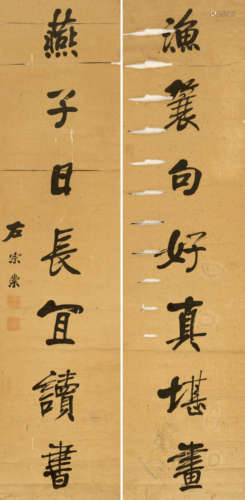 漁蓑句好真堪畫
燕子日長宜讀書
左宗棠